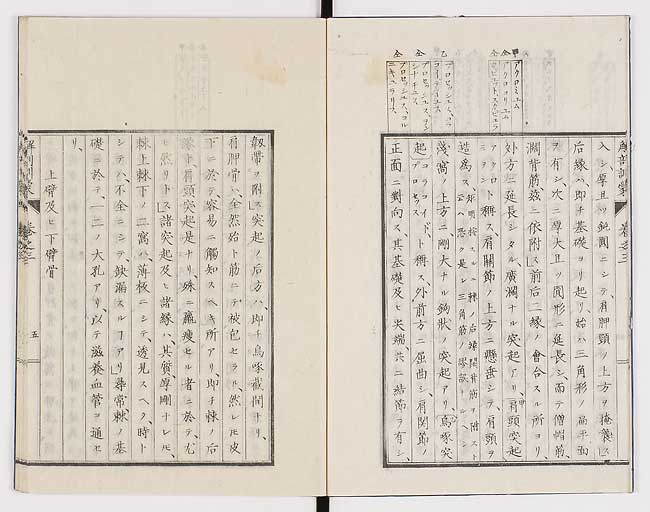 解剖訓蒙 巻之三
甲 アクロミユム
仝 アクロコリユム
乙 プロセッシュス、コライデイユス
仝 プロセッシュス
入シ厚且ツ鈍圓ニシテ、肩胛頸ノ上方ヲ掩襲ス
後縁ハ即チ基礎ヨリ起リ、始ハ三角形ノ扁平面
ヲ有シ、次ニ厚大且ツ圓形ニ延長シ、而テ僧帽筋、
濶背筋茲ニ依附ス、前后二縁ノ會合スル所ヨリ、
外方ニ延長シタル廣濶ナル突起アリ、肩頭突起
アクロト稱ス、肩關節ノ上方ニ懸垂シテ、肩頭ヲ
造爲ス
淺窩ノ上方ニ剛大ナル鈎狀ノ突起アリ、烏啄突
起コラコイドト稱ス、外前方ニ屈曲シ、肩關節ノ
正面ニ對向ス、其基礎及ヒ尖端、共ニ結節ヲ有シ、
韌帶ヲ附ス、突起ノ后方ハ、即チ烏啄截間ナリ、
肩胛骨ハ、全然殆ト筋ニテ被包セラル、然レモ皮
下ニ於テ容易ニ觸知スヘキ所アリ、即チ棘ノ后
縁ト肩頭突起是ナリ、殊ニ羸瘦セル者ニ於テ尤
ヒ然リトス、諸突起及ヒ諸縁ハ、其質厚剛ナレモ、
棘上棘下ノ二窩ハ薄板ニシテ、透見スヘク、時ト
シテハ不全ニシテ、缺漏スルコアリ、尋常、棘ノ基
礎ニ於テ、一二ノ大孔アリ、以テ滋養血管ヲ通セ
上臂及ヒ下臂骨
解剖訓蒙 巻之三 五